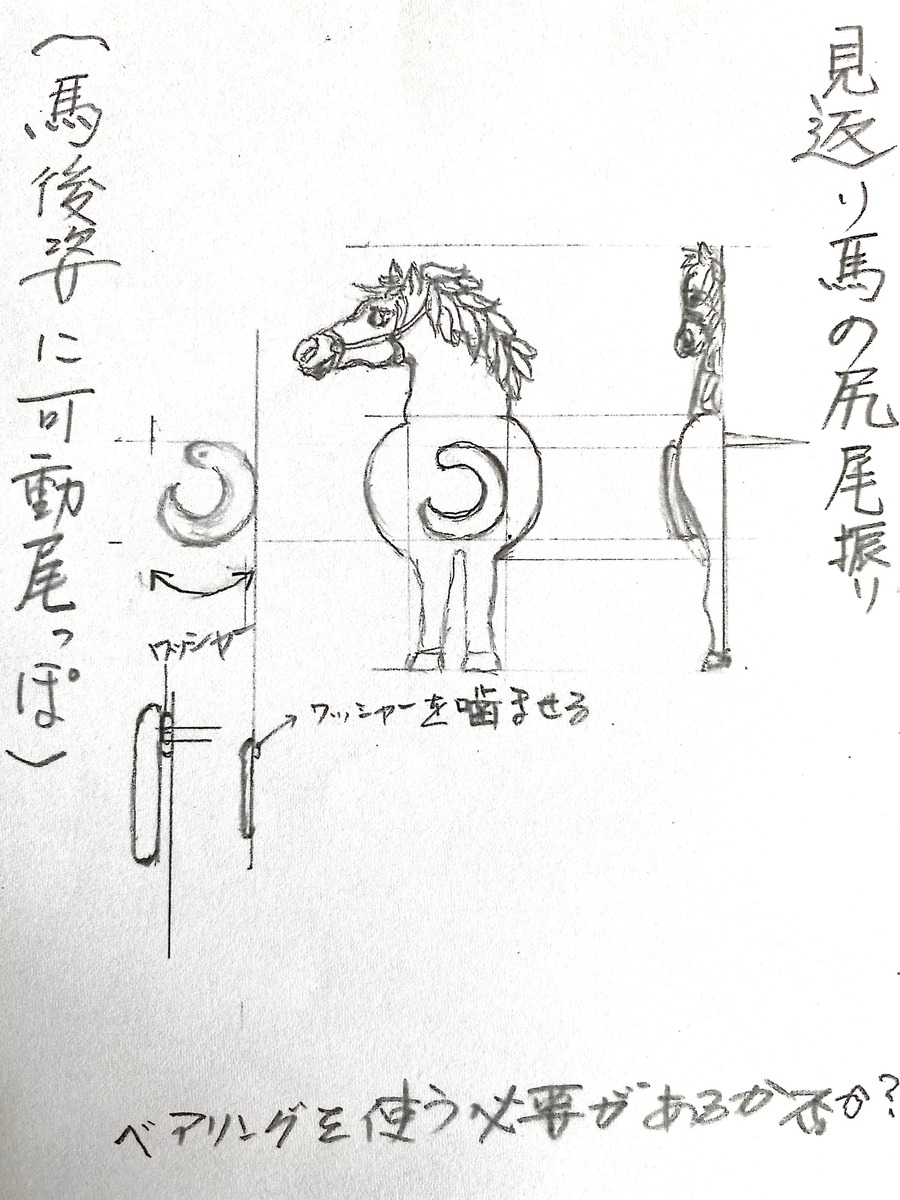 見返り馬の尻尾振り
(馬後姿に可動尾っぽ)
ワッシャー
ワッシャーを噛ませる
ベアリングを使う必要があるか否か?